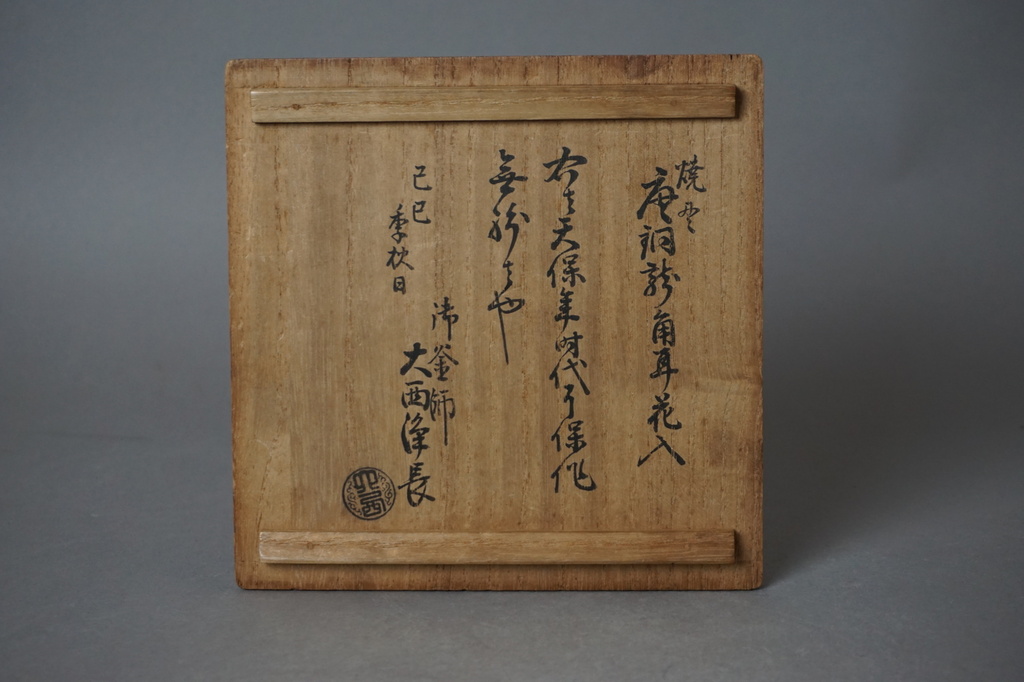 焼
唐銅龍角耳花入
右ハ天保年時代了保作
無紛もの也
己巳
季秋日
御釜師
大西浄長
大西